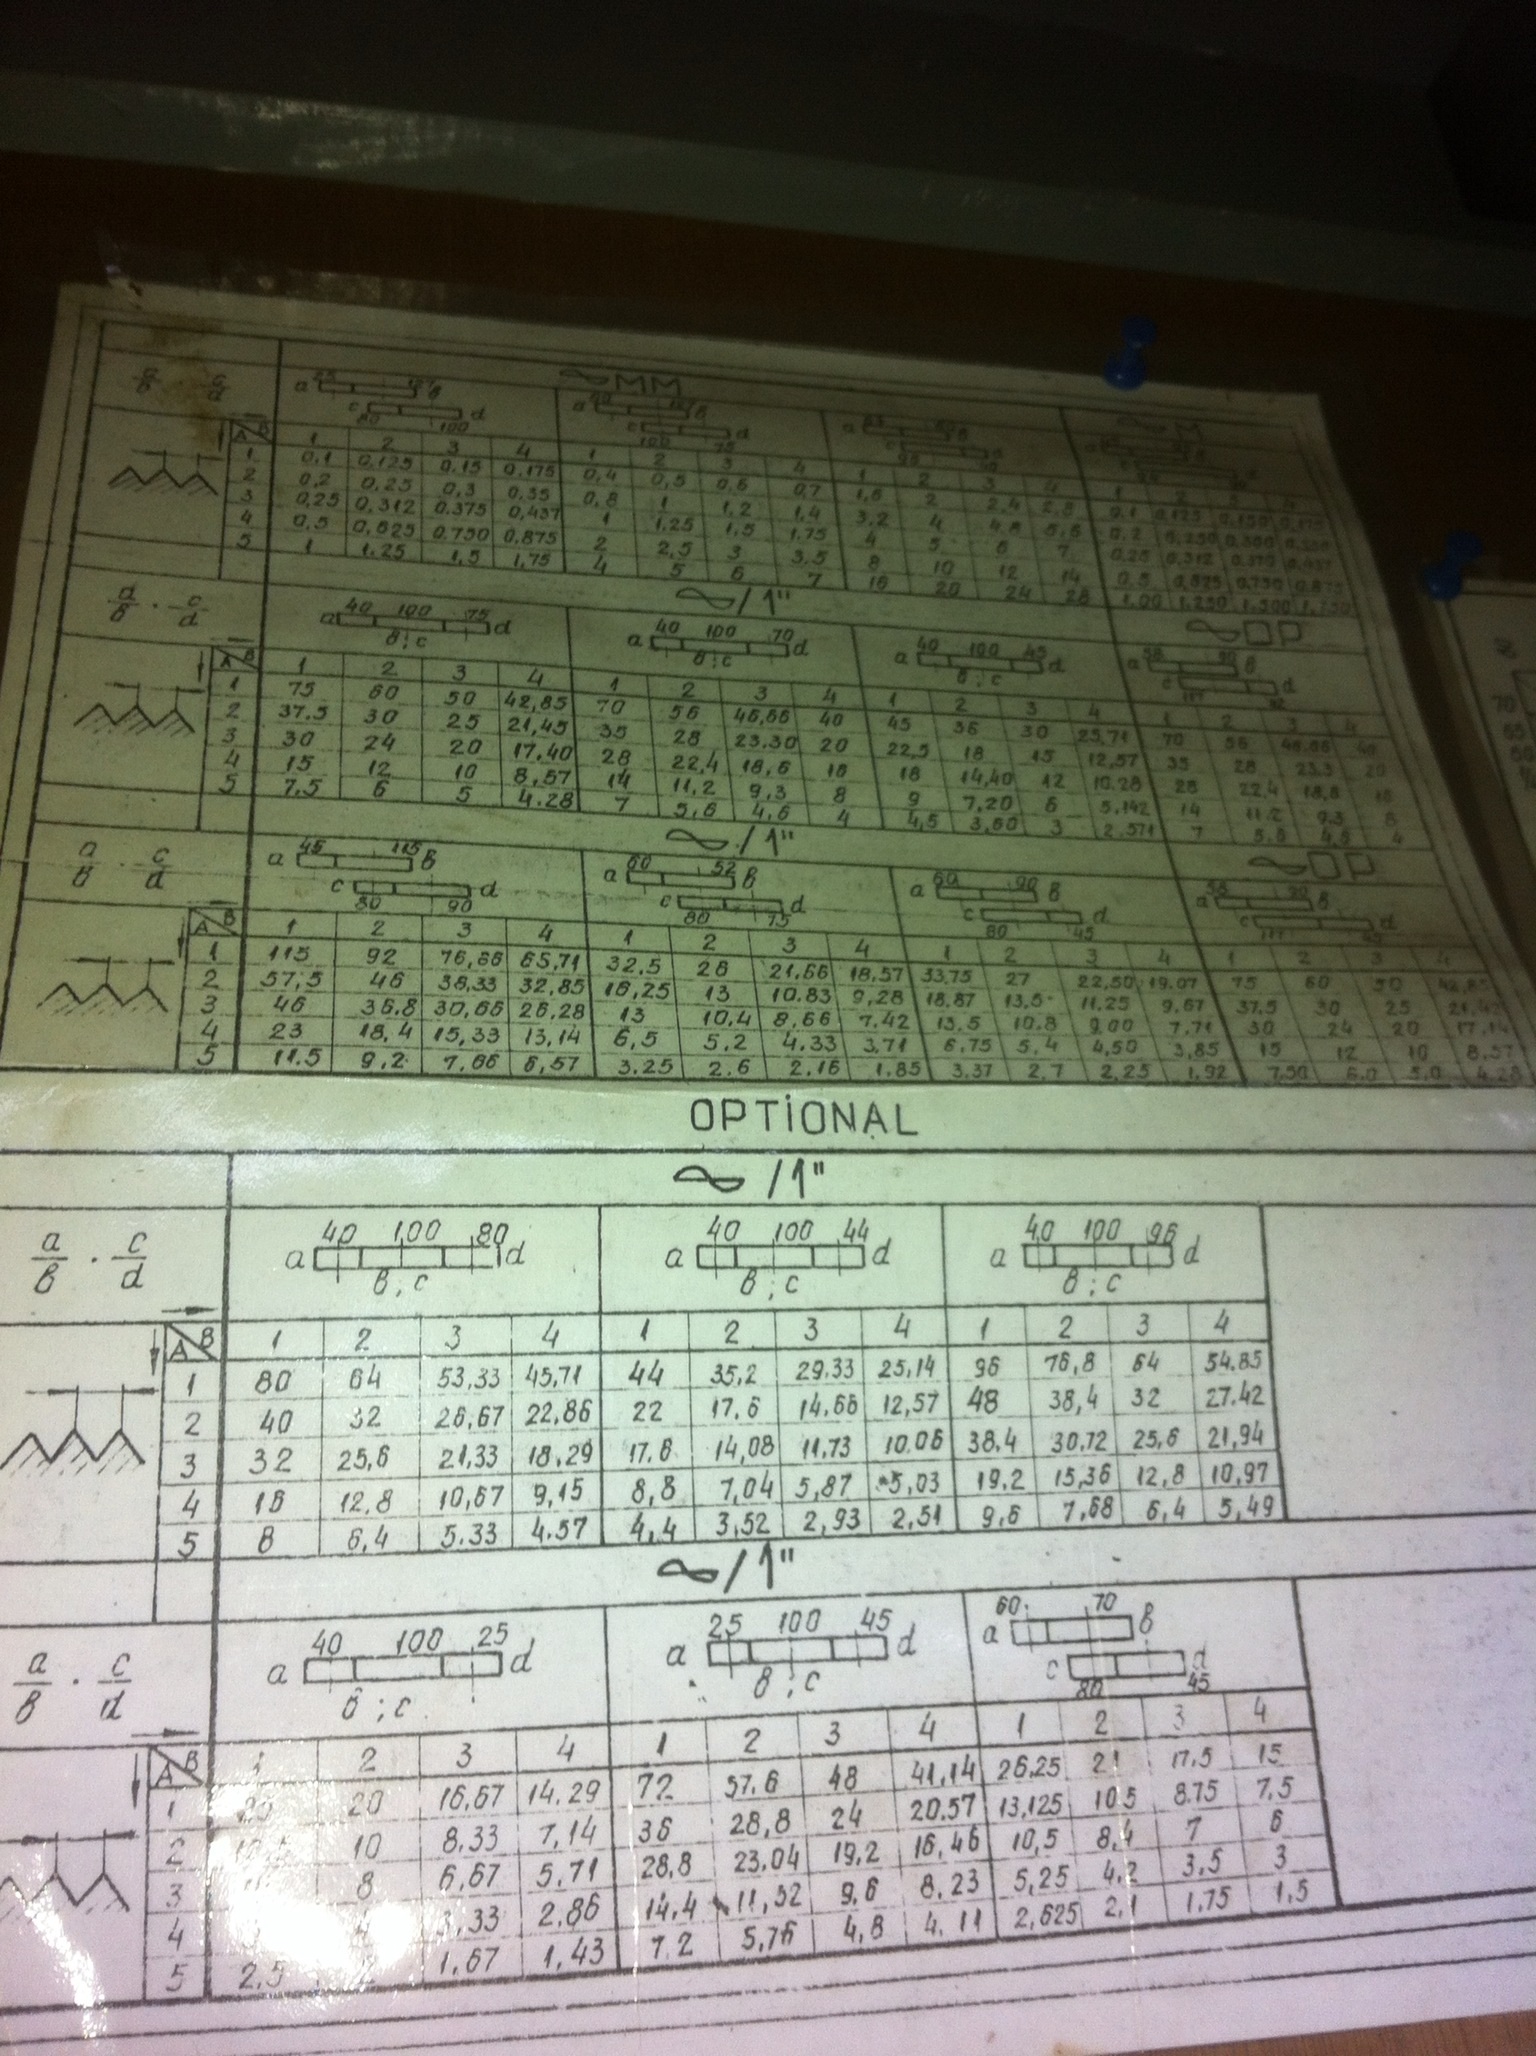 MM
a/в c/d
a в 127
c d
80 100
a 127 в
c d
100 75
A B 1 2 3 4 1 2 3 4 1 2 3 4 1 2
1 0,1 0,125 0.15 0,175 0,4 0,5 0,6 0,7 1,6 2 2,4 2,8 0,1 0,125 0,150 0,175
2 0,2 0,25 0,3 0,35 0,8 1 1,2 1,4 3,2 4 4,8 5,6 0,2 0,250 0,300 0,350
3 0,25 0,312 0,375 0,437 1 1,25 1,5 1.75 4 5 6 7 0,25 0,312 0,437
4 0,5 0,625 0.750 0,875 2 2,5 3 3.5 8 10 12 14 0,5 0,625 0,750 0,875
5 1 1,25 1,5 1,75 4 5 6 7 16 20 24 28 1,00 1,250 1,500 1,750
/1" DP
a/в · c/d
a 40 100 75 d
в ; c
a 40 100 70 d
в ; c
a 40 100 45 d
в ; c
A B 1 2 3 4 1 2 3 4 1 2 3 4 1 2 3 4
1 75 60 50 42,85 70 56 46,66 40 45 36 30 25,71 70 56 46.66 40
2 37.5 30 25 21,45 35 28 23.30 20 22,5 18 15 12,57 35 28 23.3 20
3 30 24 20 17.40 28 22,4 18,6 16 18 14,40 12 10.28 28 22,4 18,8 16
4 15 12 10 8,57 14 11,2 9,3 8 9 7,20 6 5.142 14 11.2 9.3 8
5 7,5 6 5 4.28 7 5,6 4,6 4 4,5 3,60 3 2,571 7 5.6 4,6 4
/1" DP
a/в c/d
a 45 115 в
c d
80 90
a 60 52 в
c d
80 75
a 60 90 в
c d
80 45
A B 1 2 3 4 1 2 3 4 1 2 3 4 1 2 3 4
1 115 92 76,66 65,71 32.5 26 21,66 18,57 33,75 27 22,50 19.07 75 60 50 42,85
2 57,5 46 38,33 32,85 16,25 13 10.83 9,28 18.87 13,5 11.25 9.67 37.5 30 25 21,42
3 46 36.8 30,66 26,28 13 10,4 8,66 7.42 13.5 10.8 9,00 7,71 30 24 20 17,14
4 23 18,4 15,33 13,14 6,5 5,2 4.33 3,71 6,75 5,4 4,50 3,85 15 12 10 8.57
5 11.5 9,2 7,66 6,57 3.25 2.6 2,16 1.85 3,37 2,7 2,25 1,92 7,50 6.0 5.0 4.28
OPTİONAL
/1"
a/в · c/d
a 40 100 80 d
в ; c
a 40 100 44 d
в ; c
a 40 100 96 d
в ; c
A B 1 2 3 4 1 2 3 4 1 2 3 4
1 80 64 53,33 45,71 44 35,2 29.33 25,14 96 76,8 64 54.85
2 40 32 26,67 22,86 22 17.6 14.66 12,57 48 38,4 32 27.42
3 32 25,6 21,33 18,29 17.6 14,08 11.73 10.06 38.4 30,72 25,6 21,94
4 16 12,8 10,67 9,15 8,8 7,04 5,87 5,03 19.2 15,36 12,8 10,97
5 8 6,4 5.33 4.57 4,4 3,52 2,93 2,51 9,6 7,68 6,4 5,49
/1"
a/в · c/d
a 40 100 25 d
в ; c
a 25 100 45 d
в ; c
a 60 70 в
c d
80 45
A B 1 2 3 4 1 2 3 4 1 2 3 4
1 20 16,67 14.29 72 57.6 48 41,14 26,25 21 17.5 15
2 10 8,33 7,14 36 28,8 24 20.57 13,125 10.5 8.75 7,5
3 8 6,67 5,71 28,8 23,04 19,2 16,46 10,5 8,4 7 6
4 4 3,33 2,86 14,4 11,52 9,6 8,23 5,25 4,2 3,5 3
5 2,5 2 1,67 1,43 7.2 5,76 4,8 4,11 2,625 2,1 1.75 1,5
70
65